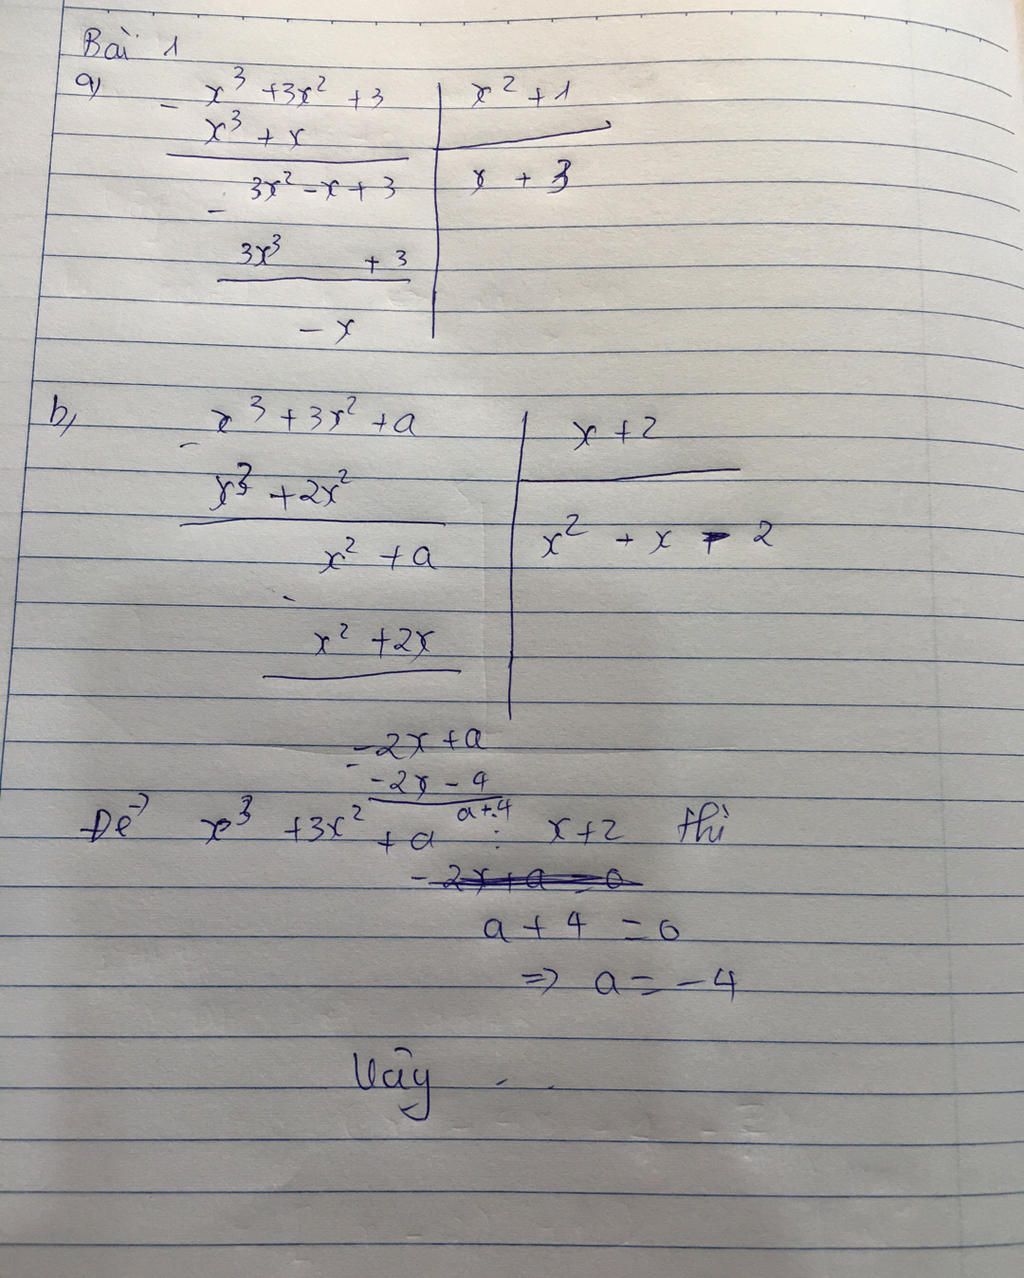 Bài 1
a) - x³ + 3x² + 3 | x² + 1
x³ + x
3x² - x + 3 | x + 3
-
3x³ + 3
- x
b, x³ + 3x² + a | x + 2
-
x³ + 2x²
x² + a | x² + x - 2
-
x² + 2x
- 2x + a
-
- 2x - 4
a + 4
Để x³ + 3x² + a ⋮ x + 2 thì
- 2x + a = 0
a + 4 = 0
=> a = - 4
Vậy . .